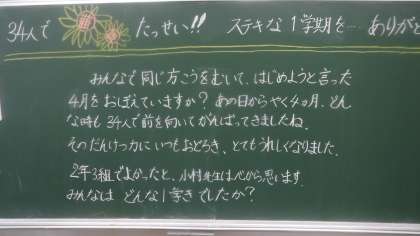 34人で たっせい!! ステキな1学期を… ありがと
みんなで同じ方こうをむいて、はじめようと言った
4月をおぼえていますか？あの日からやく4ヵ月、どん
な時も34人で前を向いてがんばってきましたね。
そのだんけつ力にいつもおどろき、とてもうれしくなりました。
2年3組でよかったと、小村先生は心から思います。
みんなは どんな1学きでしたか？